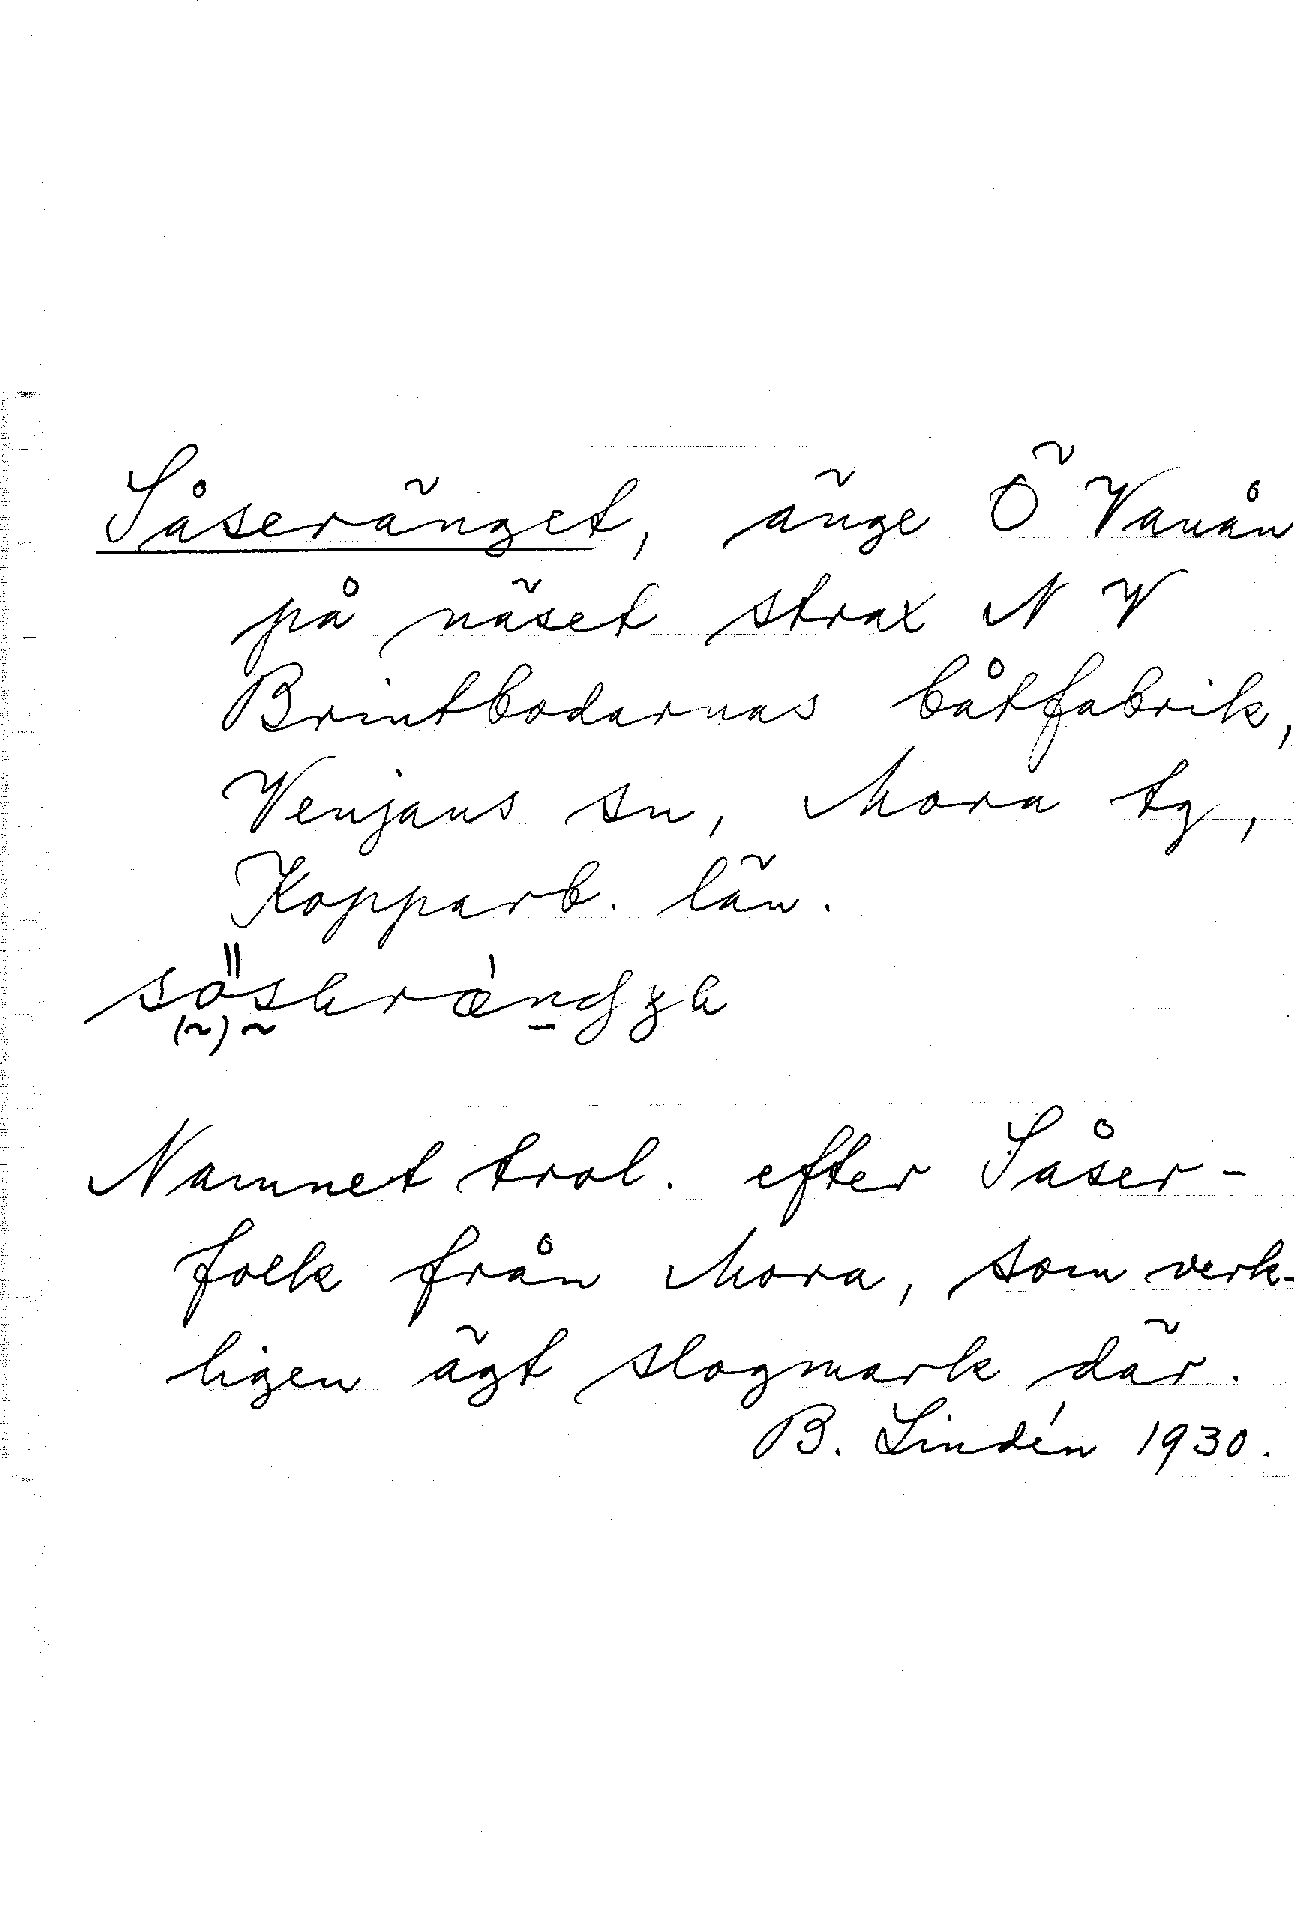 Såseränget, änge Ö Vanån
på näset strax N V
Brintbodarnas båtfabrik,
Venjans sn, Mora tg,
Kopparb. län.
Namnet trol. efter Såser-
folk från Mora, som verk-
ligen ägt slogmark där.
B. Lindén 1930.